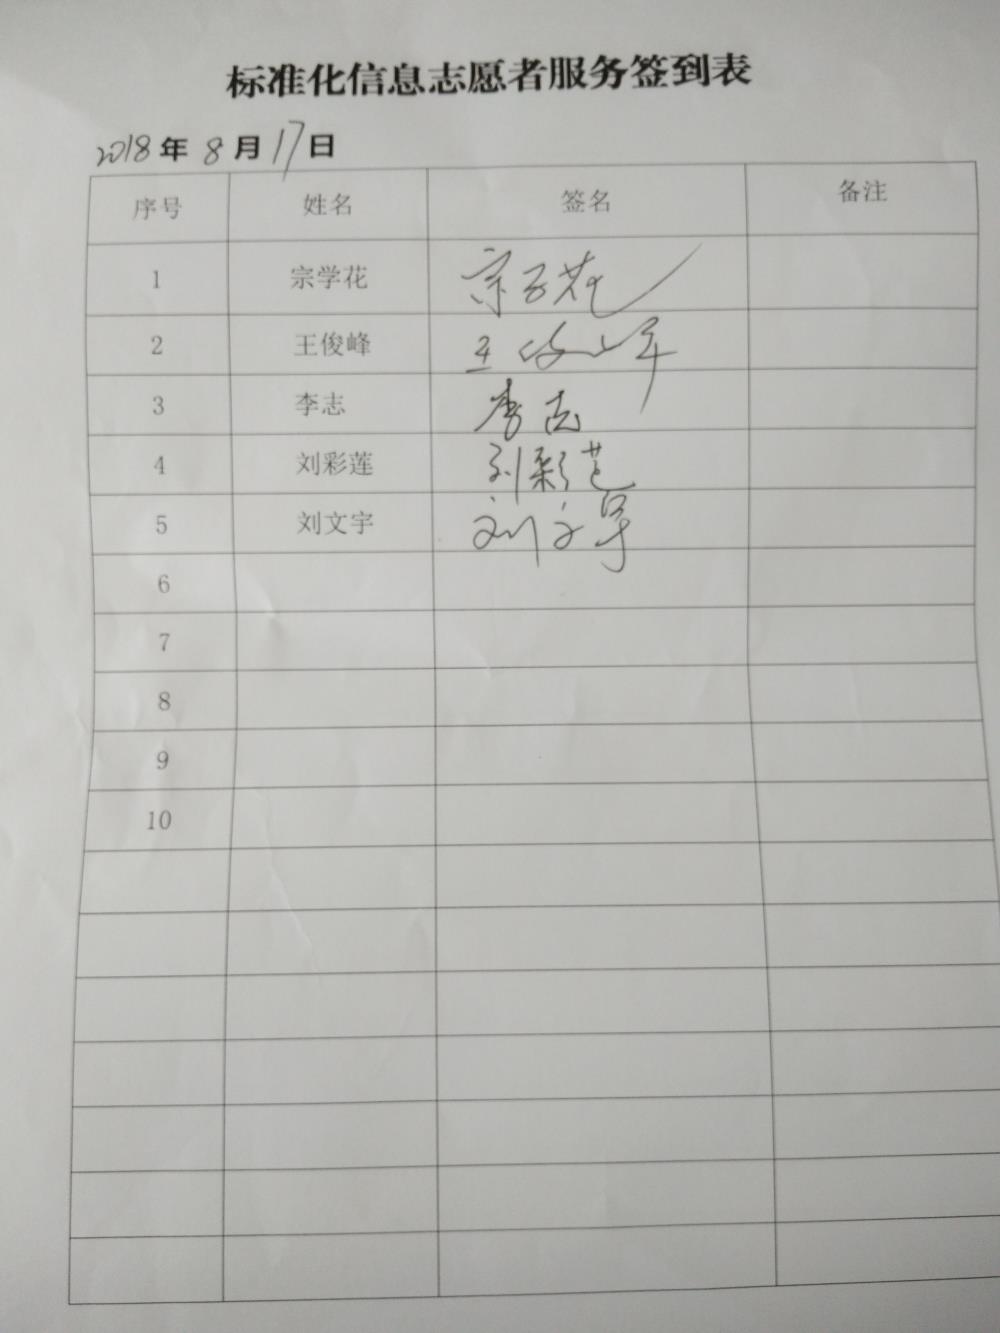 标准化信息志愿者服务签到表
2018年8月17日
序号 姓名 签名 备注
1 宗学花 宗学花
2 王俊峰 王俊峰
3 李志 李志
4 刘彩莲 刘彩莲
5 刘文宇 刘文宇
6
7
8
9
10